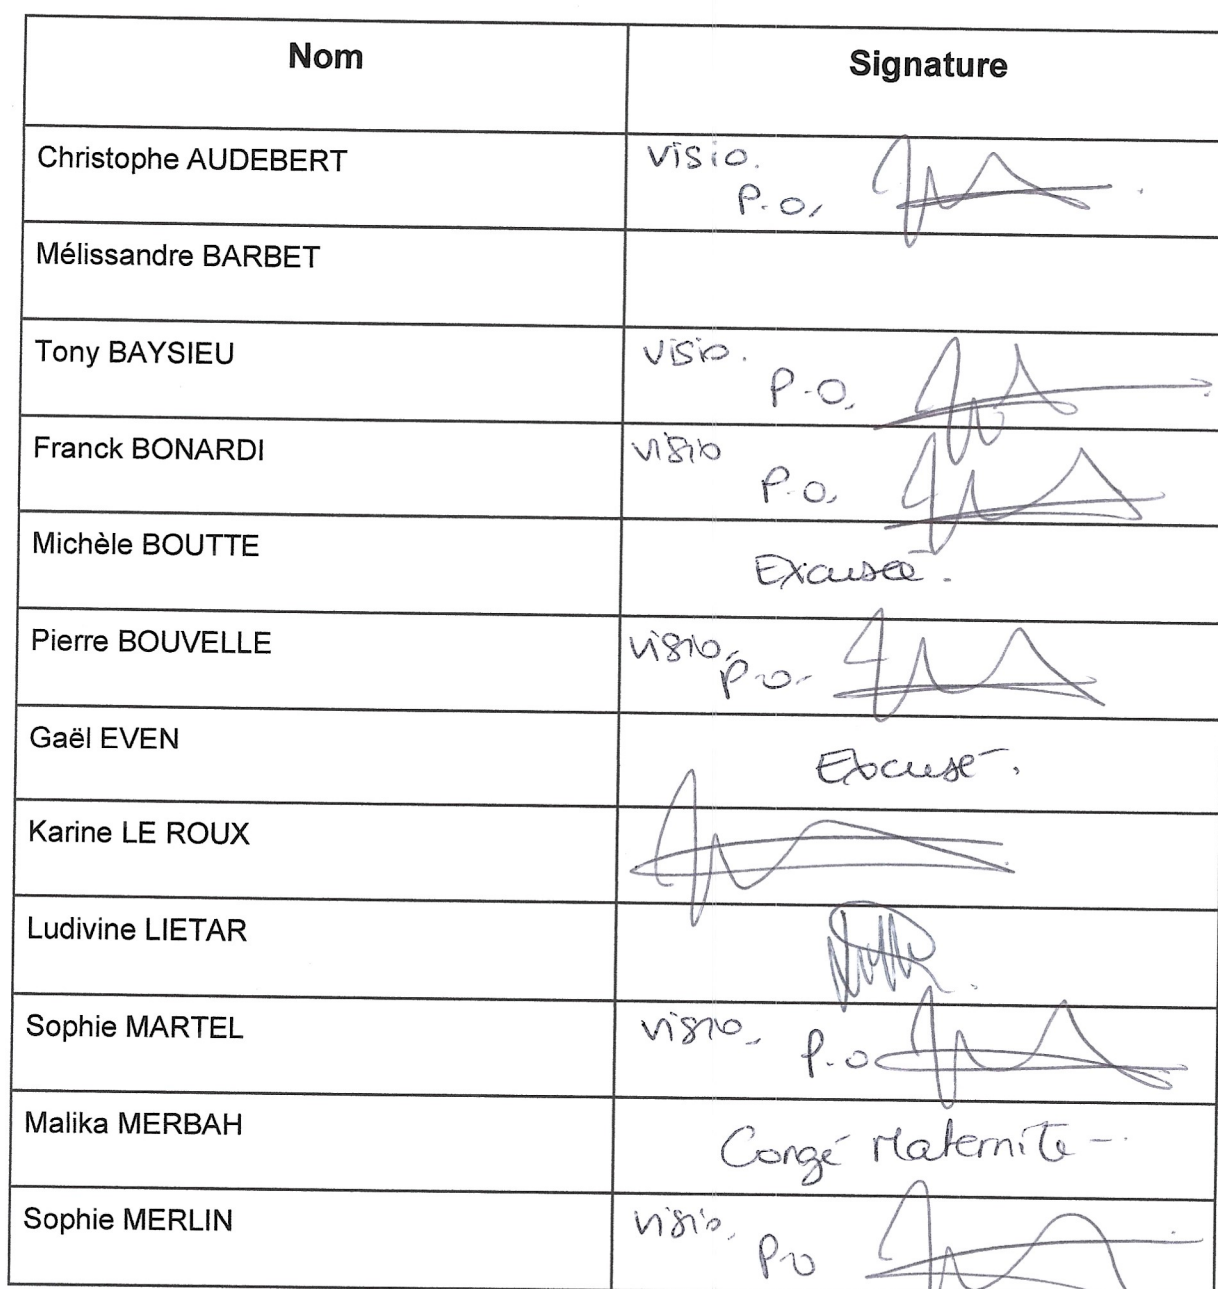 Nom
Signature
Christophe AUDEBERT
Visio.
P.O,
Mélissandre BARBET
Tony BAYSIEU
Visio.
P.O,
Franck BONARDI
visio
P.O,
Michèle BOUTTE
Excusée.
Pierre BOUVELLE
visio,
P.O.
Gaël EVEN
Excusé.
Karine LE ROUX
Ludivine LIETAR
Sophie MARTEL
visio,
P.O
Malika MERBAH
Congé Maternité -
Sophie MERLIN
visio,
P.O